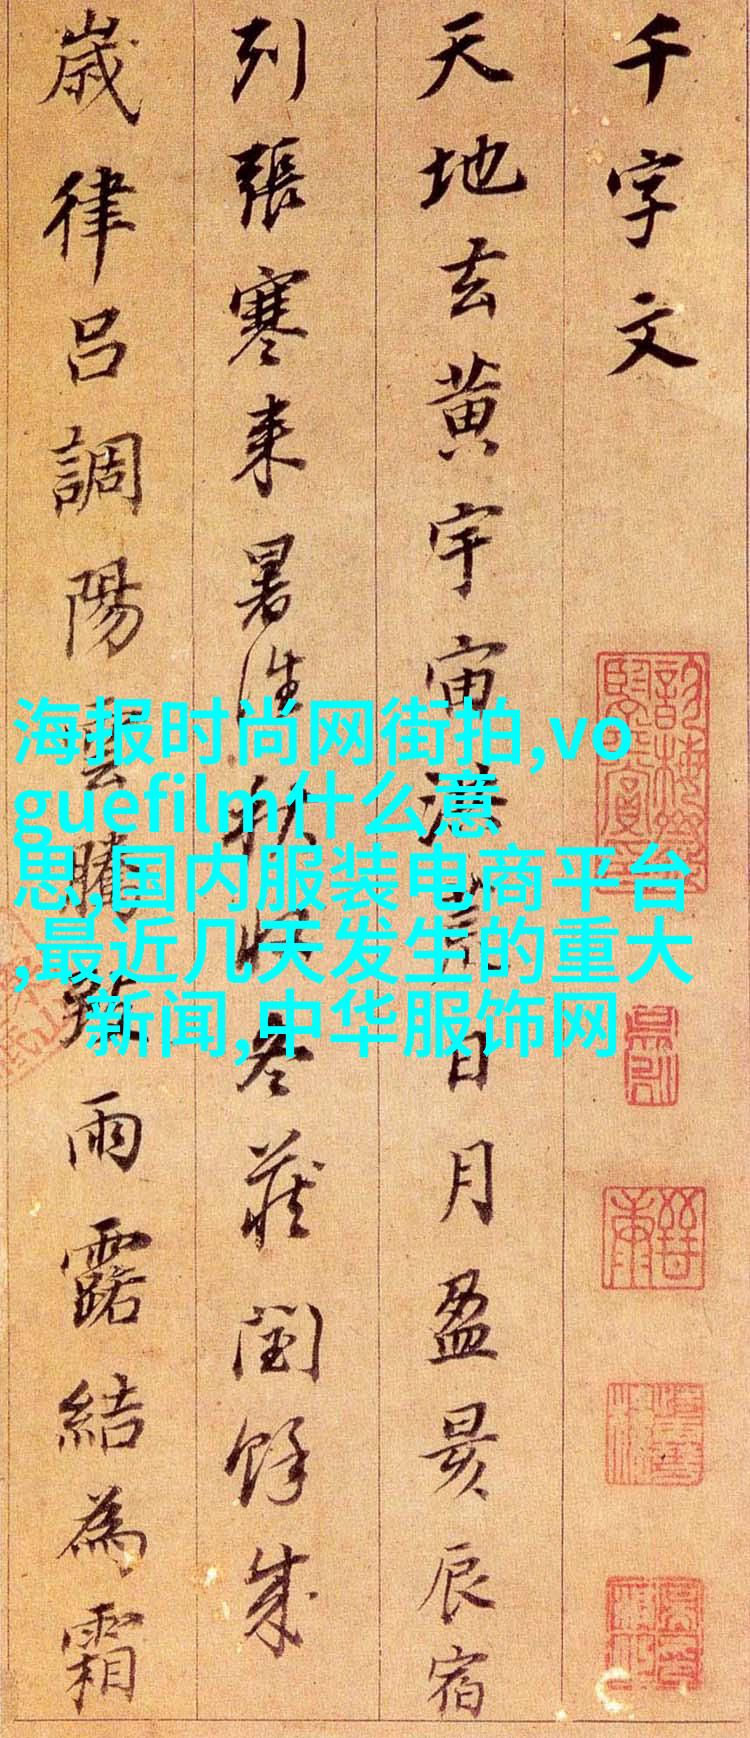 千字文
天地玄黄宇宙洪荒日月盈昃辰宿
列張寒来暑往秋收冬蔵閏餘成
歳律吕調陽雲騰致雨露結為霜
海报时尚网街拍,vo
guefilm什么意
思,国内服装电商平台
,最近几天发生的重大
新闻,中华服饰网